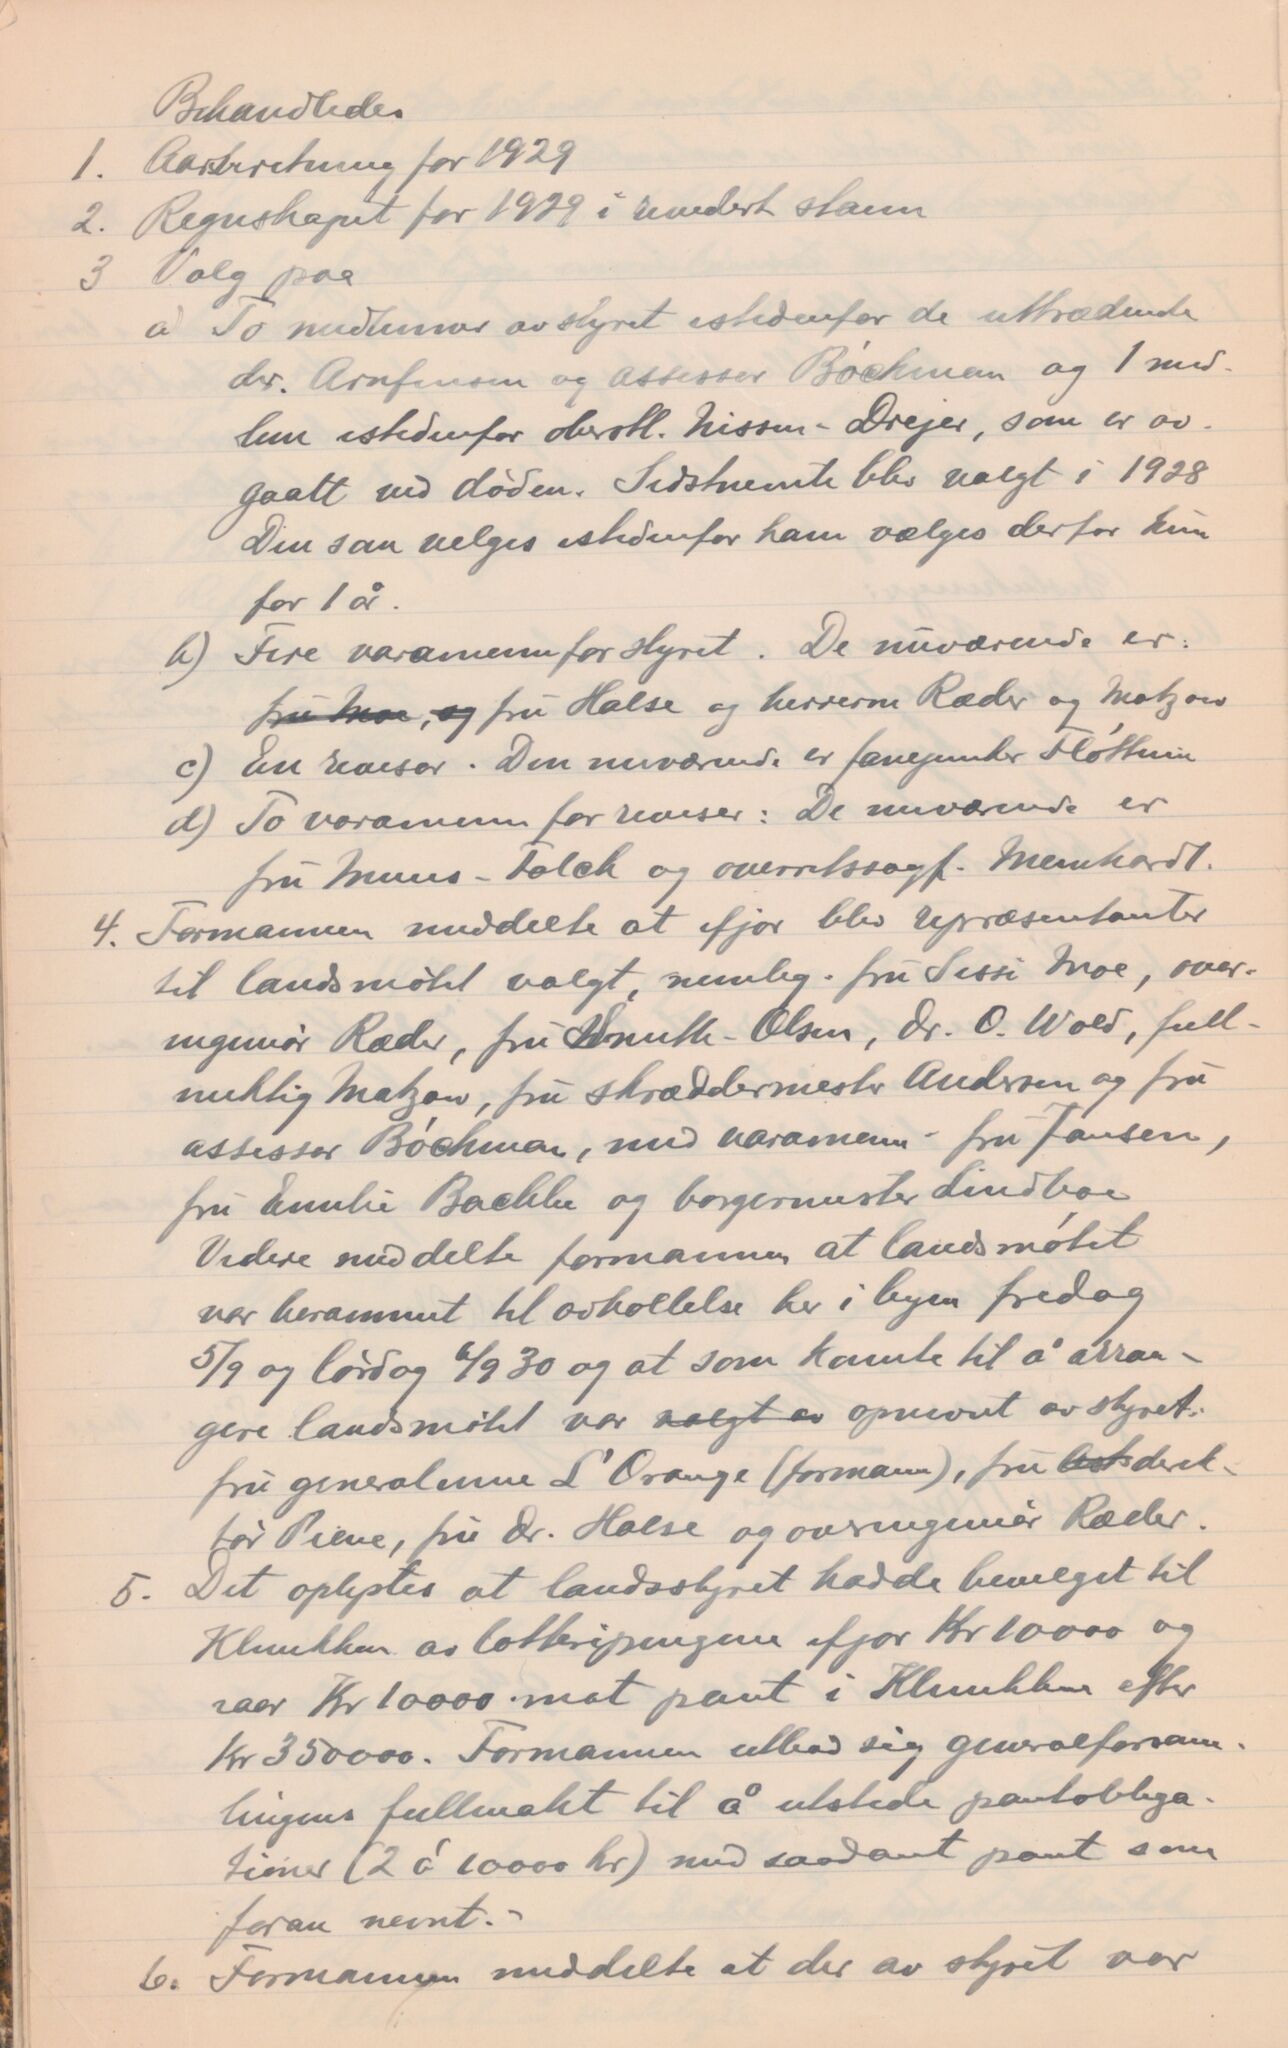 Behandledes
1. Aarsberetning for 1929
2. Regnskapet for 1929 i revidert stann
3 Valg paa
a To medlemmer av styret istedenfor de uttrædende
dr. Arnfinsen og assessor Bóckman og 1 med-
lem istedenfor oberstl. Nissen-Drejer, som er av-
gaatt ved döden. Sidstnemte blev valgt i 1928
Den som velges istedenfor ham vælges derfor kun
for 1 år.
b) Fire varamenn for styret. De nuværende er:
fru Moe, og fru Halse og herrerne Ræder og Matzow
c) En revisor. Den nuværende er fanejunker Flóttum
d) To varamenn for reviser: De nuværende er
fru Muus-Falck og overretssagf. Meinhardt.
4. Formannen meddelte at ifjor blev repræsentanter
til landsmötet valgt, nemlig. fru Sissi Moe, over-
ingeniör Ræder, fru Knuth-Olsen, dr. O. Wold, full-
mektig Matzow, fru skræddermester Andersen og fru
assessor Bóckman, med varamenn fru Jansen,
fru Emilie Backke og borgermester Lindboe
Videre meddelte formannen at landsmótet
var berammet til avholdelse her i byen fredag
5/9 og lördag 6/9 30 og at som komite til å arran-
gere landsmötet var valgt av opnevnt av styret:
fru generalinne L'Orange (formann), fru direk-
tör Piene, fru dr. Halse og overingeniör Ræder.
5. Det oplystes at landsstyret hadde bevilget til
Klinikken av lotteripengene ifjor Kr 10000 og
iaar Kr 10000 mot pant i Klinikken efter
Kr 350000. Formannen utbad sig generalforsam-
lingens fullmakt til å utstede pantobliga-
tioner (2 á 10000 kr) med saadant pant som
foran nevnt.-
6. Formannen meddelte at der av styret var